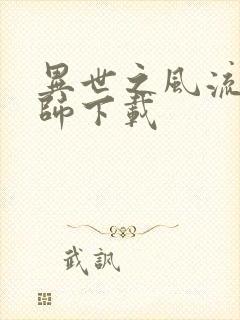 異世之風流
師下載
武訊